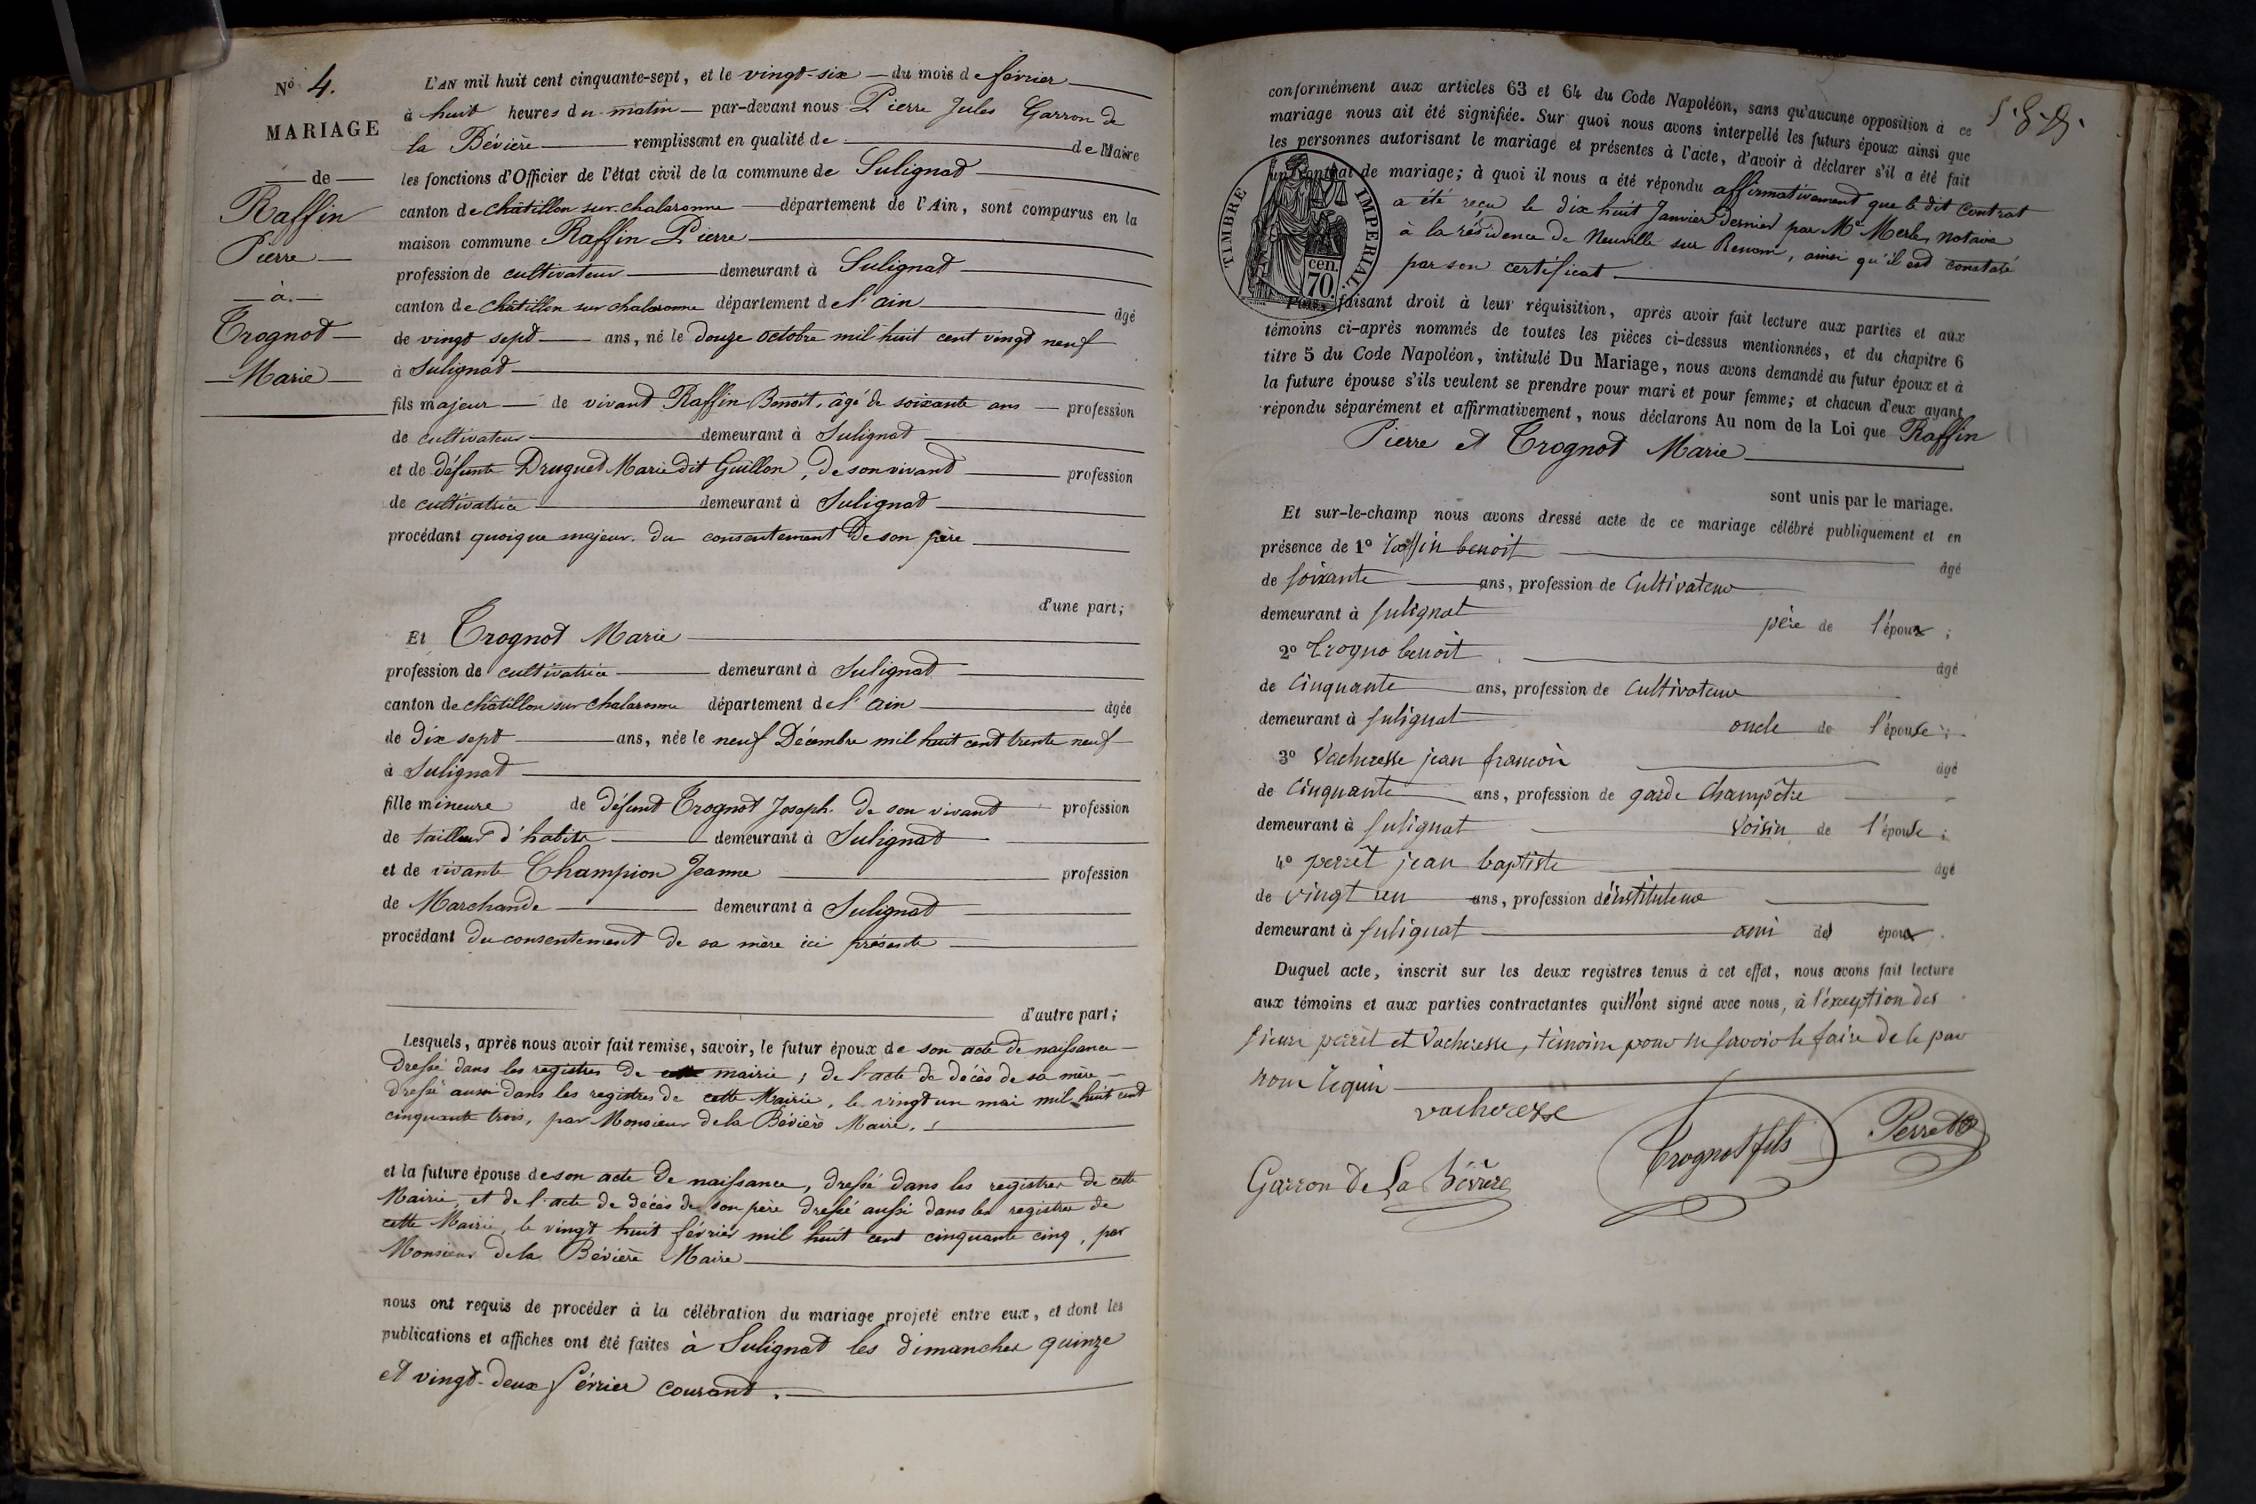 N° 4.
MARIAGE
de
Raffin
Pierre
à
Trognot
Marie
L'AN mil huit cent cinquante-sept, et le vingt-six du mois de février
à huit heures du matin par-devant nous Pierre Jules Garron de
la Bévière remplissant en qualité de de Maire
les fonctions d'Officier de l'état civil de la commune de Sulignat
canton de châtillon sur chalaronne département de l'Ain, sont comparus en la
maison commune Raffin Pierre
profession de cultivateur demeurant à Sulignat
canton de châtillon sur chalaronne département de l'ain âgé
de vingt sept ans, né le douze octobre mil huit cent vingt neuf
à Sulignat
fils majeur de vivant Raffin Benoit, âgé de soixante ans profession
de cultivateur demeurant à Sulignat
et de défunte Druguet Marie dit Guillon, de son vivant profession
de cultivatrice demeurant à Sulignat
procédant quoique majeur du consentement de son père
d'une part;
Et Trognot Marie
profession de cultivatrice demeurant à Sulignat
canton de châtillon sur chalaronne département de l'ain âgée
de dix sept ans, née le neuf Décembre mil huit cent trente neuf
à Sulignat
fille mineure de défunt Trognot Joseph de son vivant profession
de tailleur d'habits demeurant à Sulignat
et de vivante Champion Jeanne profession
de Marchande demeurant à Sulignat
procédant du consentement de sa mère ici présente
d'autre part;
Lesquels, après nous avoir fait remise, savoir, le futur époux de son acte de naissance
dressé dans les registres de mairie; de l'acte de décès de sa mère
dressé aussi dans les registres de cette Mairie, le vingt un mai mil huit cent
cinquante trois, par Monsieur de la Bévière Maire.
et la future épouse de son acte de naissance, dressé dans les registres de cette
Mairie, et de l'acte de décès de son père dressé aussi dans les registres de
cette Mairie, le vingt huit février mil huit cent cinquante cinq, par
Monsieur de la Bévière Maire
nous ont requis de procéder à la célébration du mariage projeté entre eux, et dont les
publications et affiches ont été faites à Sulignat les dimanches quinze
et vingt-deux février courant.
conformément aux articles 63 et 64 du Code Napoléon, sans qu'aucune opposition à ce
mariage nous ait été signifiée. Sur quoi nous avons interpellé les futurs époux ainsi que
les personnes autorisant le mariage et présentes à l'acte, d'avoir à déclarer s'il a été fait
un contrat de mariage; à quoi il nous a été répondu affirmativement que le dit contrat
a été reçu le dix huit Janvier dernier par Me Merle, notaire
à la résidence de Neuville sur Renom, ainsi qu'il est constaté
par son certificat
TIMBRE IMPERIAL
70. cen.
Puis, faisant droit à leur réquisition, après avoir fait lecture aux parties et aux
témoins ci-après nommés de toutes les pièces ci-dessus mentionnées, et du chapitre 6
titre 5 du Code Napoléon, intitulé Du Mariage, nous avons demandé au futur époux et à
la future épouse s'ils veulent se prendre pour mari et pour femme; et chacun d'eux ayant
répondu séparément et affirmativement, nous déclarons Au nom de la Loi que Raffin
Pierre et Trognot Marie
sont unis par le mariage.
Et sur-le-champ nous avons dressé acte de ce mariage célébré publiquement et en
présence de 1° Raffin benoit âgé
de soixante ans, profession de Cultivateur
demeurant à sulignat père de l'époux;
2° trogno benoit âgé
de Cinquante ans, profession de Cultivateur
demeurant à sulignat oncle de l'épouse;
3° Vacheresse jean francois âgé
de Cinquante ans, profession de garde Champêtre
demeurant à sulignat Voisin de l'épouse;
4° perret jean baptiste âgé
de vingt un ans, profession d'instituteur
demeurant à sulignat ami de époux.
Duquel acte, inscrit sur les deux registres tenus à cet effet, nous avons fait lecture
aux témoins et aux parties contractantes qui l'ont signé avec nous, à l'exeption des
sieurs perret et Vacheresse, témoins pour ne savoir le faire de le par
nous requis
vacheresse
Trognot fils
Perret
Garron de La Bévière